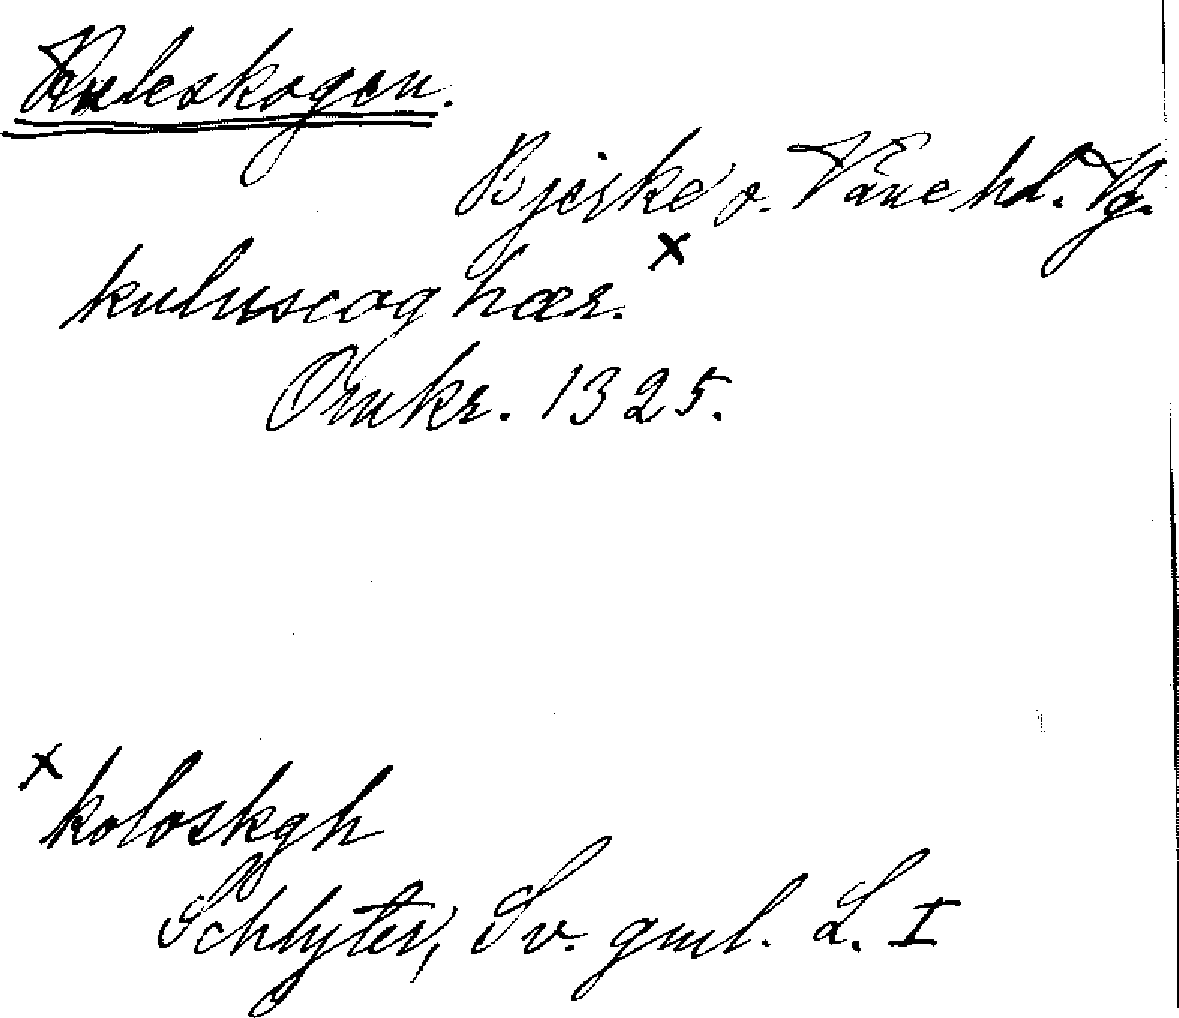 Kuleskogen.
Bjerke s. Väne hd. Vg.
kuluscoghær. x
Omkr. 1325.
x
koloskgh
Schlyter, Sv. gml. L. I